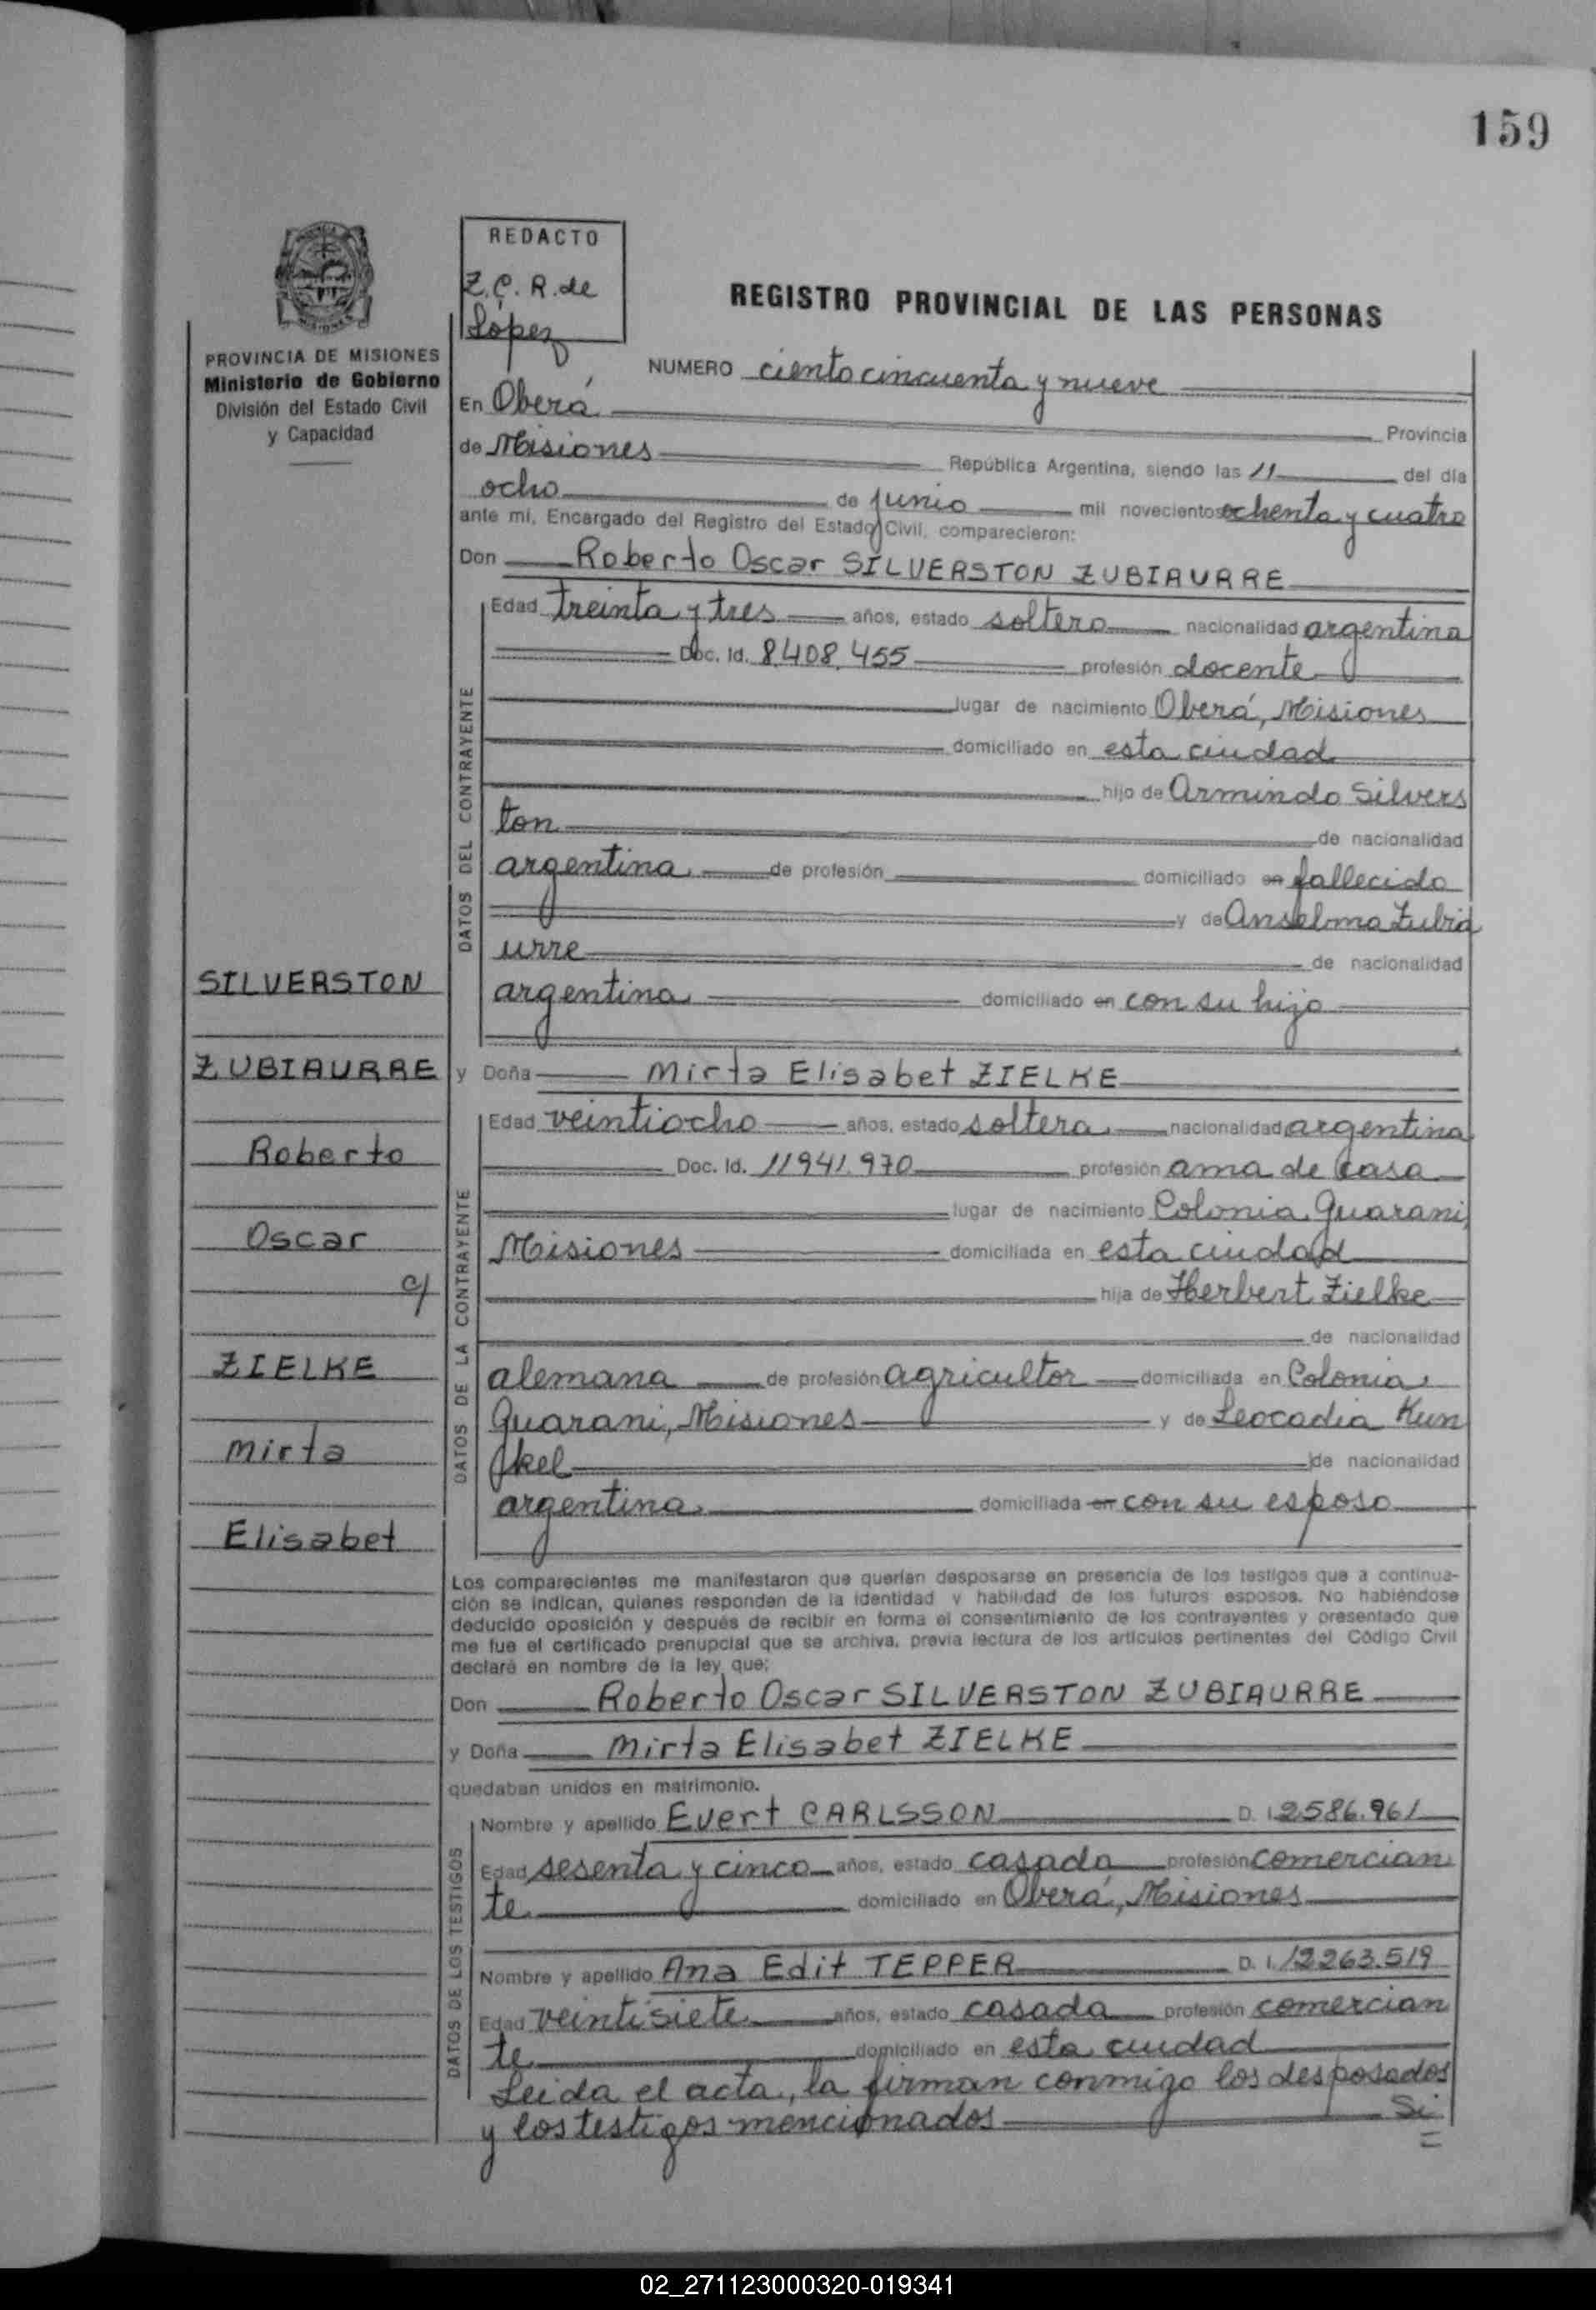 159
REDACTO
Z.C.R. de
López
REGISTRO PROVINCIAL DE LAS PERSONAS
PROVINCIA DE MISIONES
Ministerio de Gobierno
División del Estado Civil
y Capacidad
NUMERO ciento cincuenta y nueve
En Oberá Provincia
de Misiones República Argentina, siendo las 11 del día
ocho de junio mil novecientos ochenta y cuatro
ante mí, Encargado del Registro del Estado Civil, comparecieron:
Don Roberto Oscar SILVERSTON ZUBIAURRE
DATOS DEL CONTRAYENTE
Edad treinta y tres años, estado soltero nacionalidad argentina
Doc. Id. 8.408.455 profesión docente
lugar de nacimiento Oberá, Misiones
domiciliado en esta ciudad
hijo de Armindo Silvers
ton de nacionalidad
argentina de profesión domiciliado en fallecido
y de Anselma Zubia
urre de nacionalidad
argentina domiciliado en con su hijo
SILVERSTON
ZUBIAURRE
Roberto
Oscar
c/
ZIELKE
Mirta
Elisabet
y Doña Mirta Elisabet ZIELKE
DATOS DE LA CONTRAYENTE
Edad veintiocho años, estado soltera nacionalidad argentina
Doc. Id. 11941.970 profesión ama de casa
lugar de nacimiento Colonia Guaraní,
Misiones domiciliada en esta ciudad
hija de Herbert Zielke
de nacionalidad
alemana de profesión agricultor domiciliada en Colonia
Guaraní, Misiones y de Leocadia Kun
kel de nacionalidad
argentina domiciliada en con su esposo
Los comparecientes me manifestaron que querían desposarse en presencia de los testigos que a continua-
ción se indican, quienes responden de la identidad y habilidad de los futuros esposos. No habiéndose
deducido oposición y después de recibir en forma el consentimiento de los contrayentes y presentado que
me fue el certificado prenupcial que se archiva, previa lectura de los artículos pertinentes del Código Civil
declaré en nombre de la ley que:
Don Roberto Oscar SILVERSTON ZUBIAURRE
y Doña Mirta Elisabet ZIELKE
quedaban unidos en matrimonio.
DATOS DE LOS TESTIGOS
Nombre y apellido Evert CARLSSON D. I. 2.586.961
Edad sesenta y cinco años, estado casado profesión comercian
te domiciliado en Oberá, Misiones
Nombre y apellido Ana Edit TEPPER D. I. 12.263.519
Edad veintisiete años, estado casada profesión comercian
te domiciliado en esta ciudad
Leida el acta, la firman conmigo los desposados
y los testigos mencionados Si
02_271123000320-019341